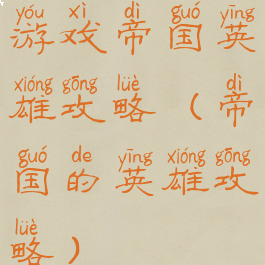 yóu xì dì guó yīng
游戏帝国英
xióng gōng lüè dì
雄攻略（帝
guó de yīng xióng gōng
国的英雄攻
lüè
略）